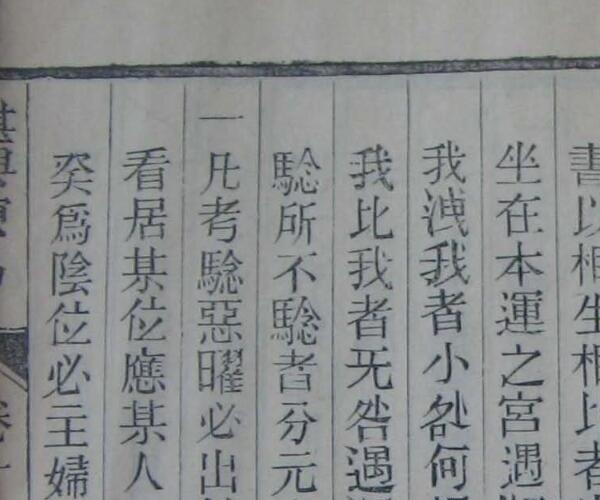 書以相生相比者
坐在本運之宮遇
我洩我者小咎何
我比我者旡咎遇
騐所不騐者分元
一凡考騐惡曜必出
看居某位應某人
癸爲陰位必主婦